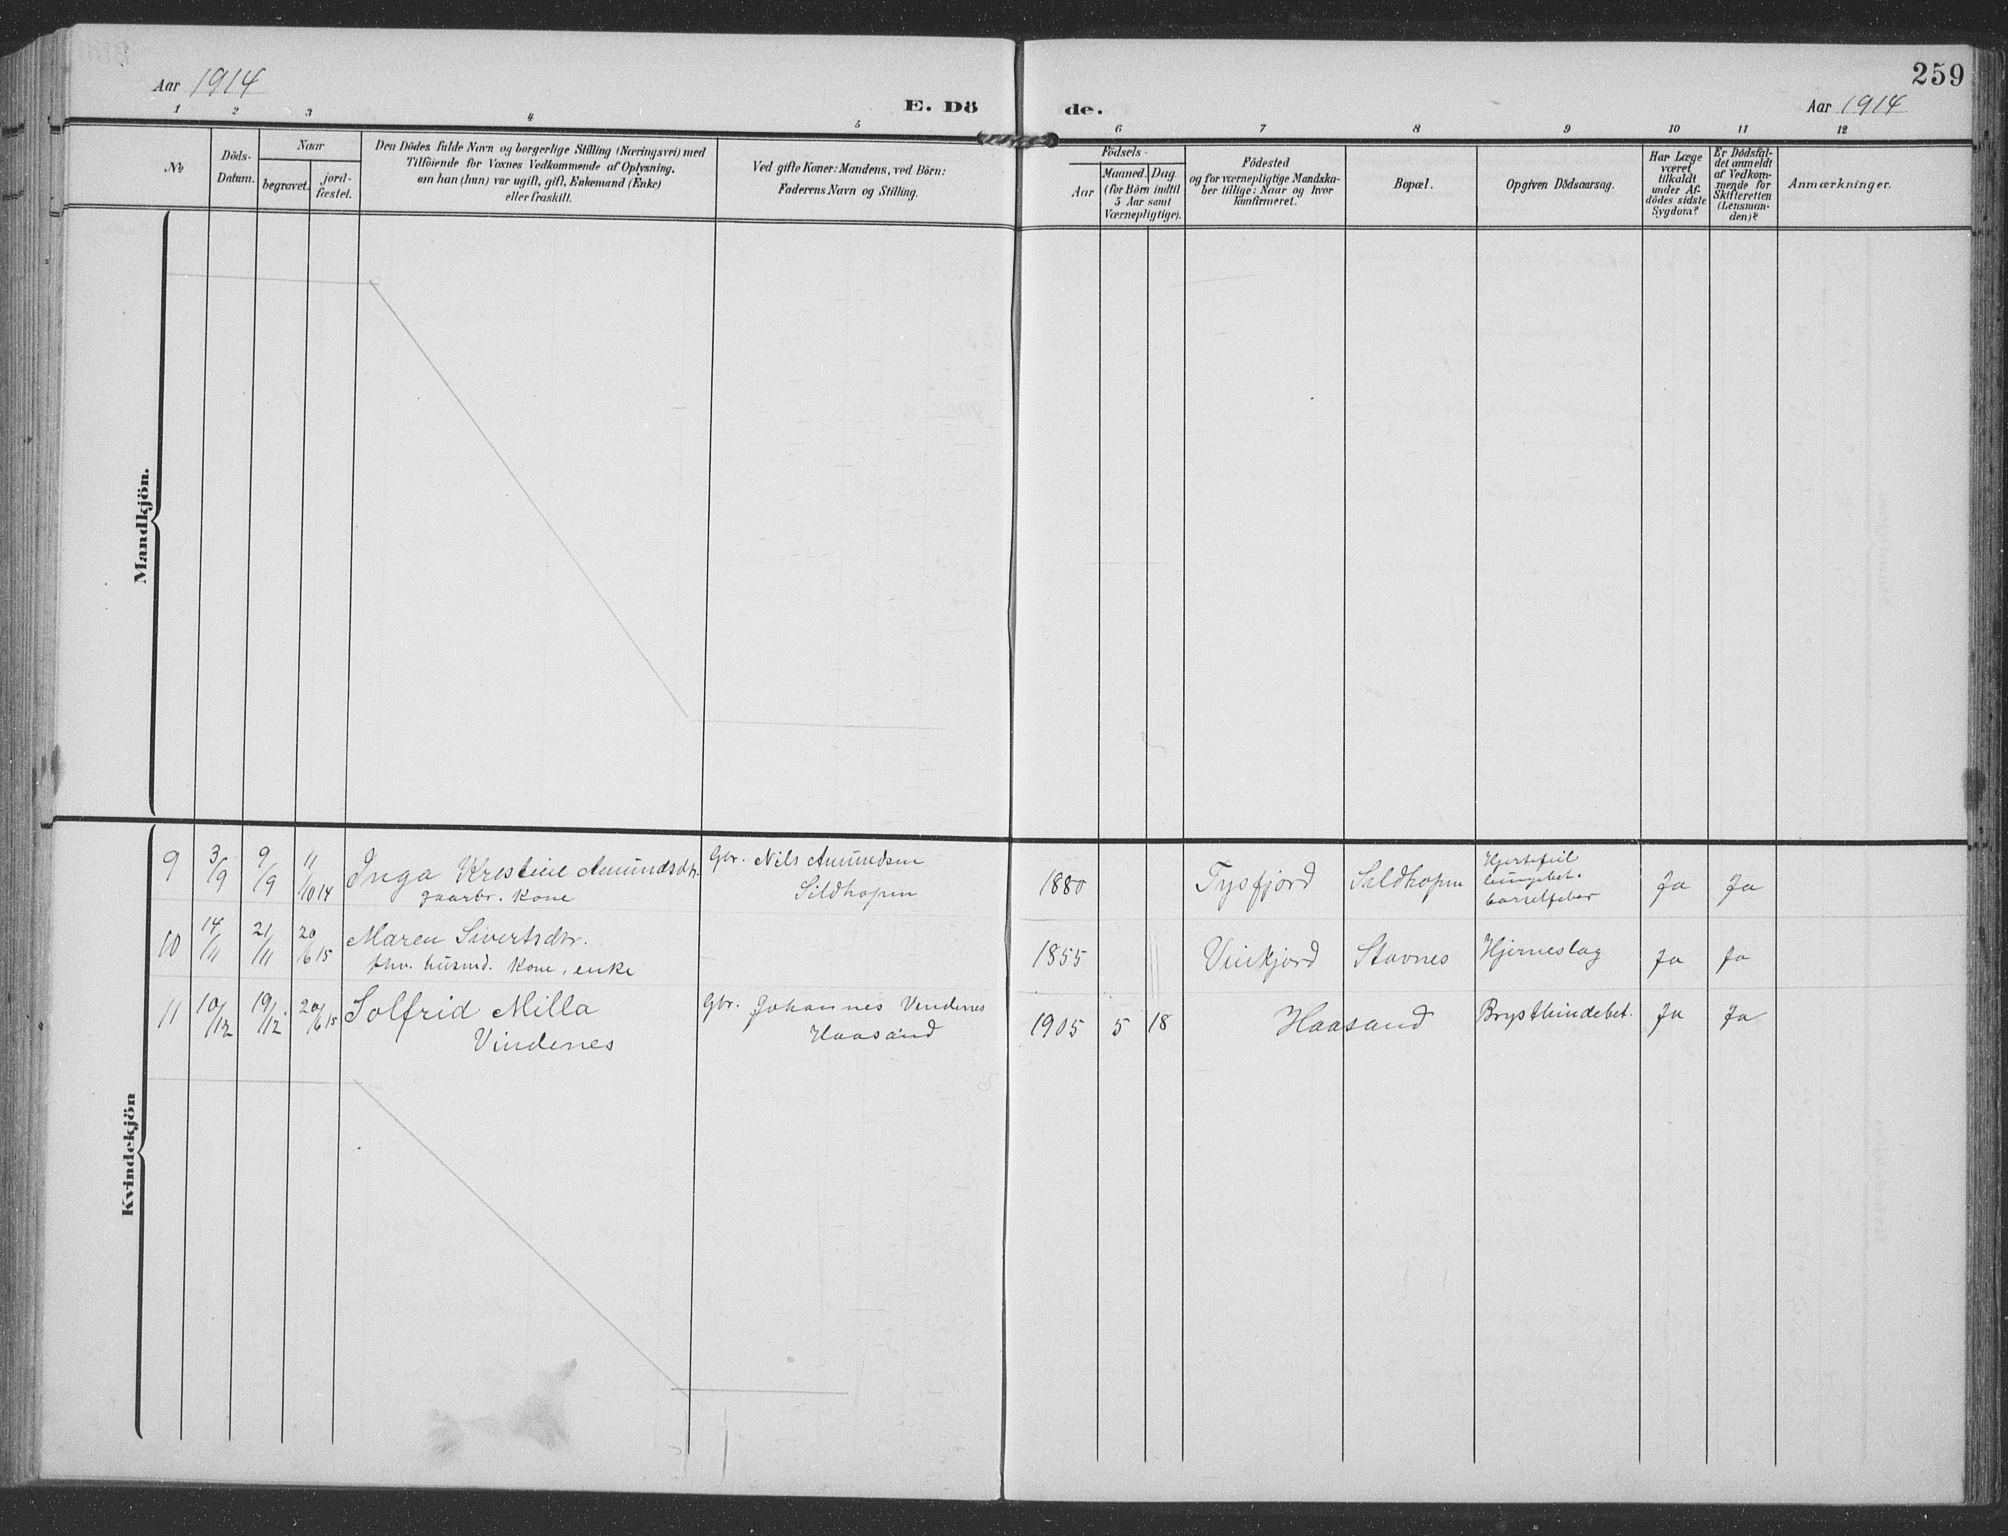 259
Aar 1914
E. Dö
de.
Aar 1914
1 2 3 4 5 6 7 8 9 10 11 12
No
Döds-
Datum.
Naar
begravet.
jord-
fæstet.
Den Dödes fulde Navn og borgerlige Stilling (Næringsvei) med
Tilföiende for Voxnes Vedkommende af Oplysning,
om han (hun) var ugift, gift, Enkemand (Enke)
eller fraskilt.
Ved gifte Koner: Mandens, ved Börn:
Faderens Navn og Stilling.
Födsels-
Aar
Maaned. Dag.
(for Börn indtil
5 Aar samt
Værnepligtige).
Födested
og for værnepligtige Mandska-
ber tillige: Naar og hvor
konfirmeret.
Bopæl.
Opgiven Dödsaarsag.
Har Læge
været
tilkaldt
under Af-
dödes sidste
Sygdom?
Er Dödsfal-
det anmeldt
af Vedkom-
mende for
Skifteretten
(Lensman-
den)?
Anmærkninger.
Mandkjön.
Kvindekjön
9 3/9 9/9 11/10 14 Inga Kristine Amundsdtr. Gbr. Nils Amundsen 1880 Tysfjord Sildhopen Hjertefeil Ja Ja
gaarbr. kone Sildhopen lungebet.
barselfeber
10 14/11 21/11 20/6 15 Maren Sivertsdtr. 1855 Vinkjord Stavnes Hjerneslag Ja Ja
fhv. husmd. kone, enke
11 10/12 19/12. 20/6 15 Solfrid Milla Gbr. Johannes Vindenes 1905 5 18 Haasand Brysthindebet. Ja Ja
Vindenes Haasand